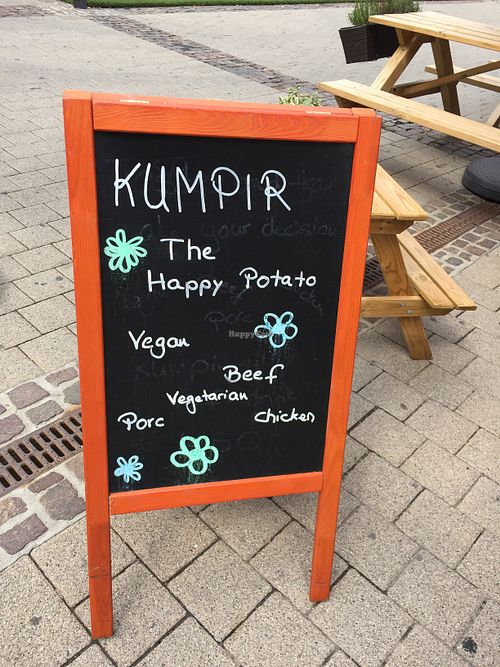 KUMPIR
The
Happy Potato
Vegan
Beef
Vegetarian
Porc
chicken